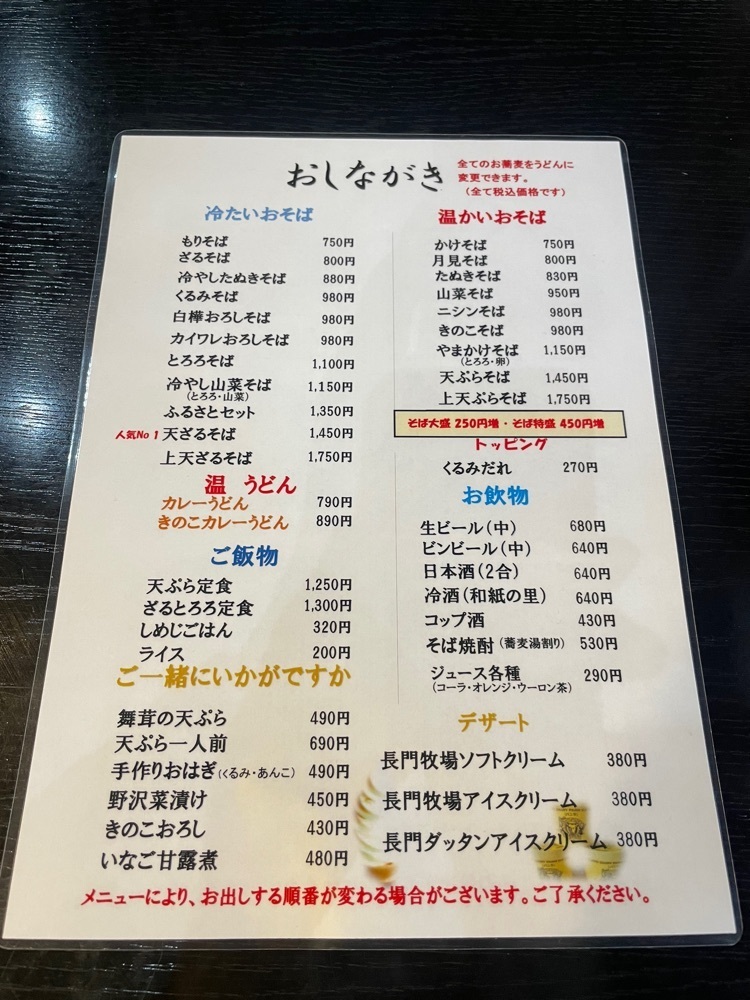 おしながき
全てのお蕎麦をうどんに
変更できます。
（全て税込価格です）
冷たいおそば
もりそば 750円
ざるそば 800円
冷やしたぬきそば 880円
くるみそば 980円
白樺おろしそば 980円
カイワレおろしそば 980円
とろろそば 1,100円
冷やし山菜そば 1,150円
（とろろ・山菜）
ふるさとセット 1,350円
人気No 1 天ざるそば 1,450円
上天ざるそば 1,750円
温 うどん
カレーうどん 790円
きのこカレーうどん 890円
ご飯物
天ぷら定食 1,250円
ざるとろろ定食 1,300円
しめじごはん 320円
ライス 200円
ご一緒にいかがですか
舞茸の天ぷら 490円
天ぷら一人前 690円
手作りおはぎ（くるみ・あんこ） 490円
野沢菜漬け 450円
きのこおろし 430円
いなご甘露煮 480円
温かいおそば
かけそば 750円
月見そば 800円
たぬきそば 830円
山菜そば 950円
ニシンそば 980円
きのこそば 980円
やまかけそば 1,150円
（とろろ・卵）
天ぷらそば 1,450円
上天ぷらそば 1,750円
そば大盛 250円増・そば特盛 450円増
トッピング
くるみだれ 270円
お飲物
生ビール（中） 680円
ビンビール（中） 640円
日本酒（2合） 640円
冷酒（和紙の里） 640円
コップ酒 430円
そば焼酎（蕎麦湯割り） 530円
ジュース各種 290円
（コーラ・オレンジ・ウーロン茶）
デザート
長門牧場ソフトクリーム 380円
長門牧場アイスクリーム 380円
長門ダッタンアイスクリーム 380円
メニューにより、お出しする順番が変わる場合がございます。ご了承ください。